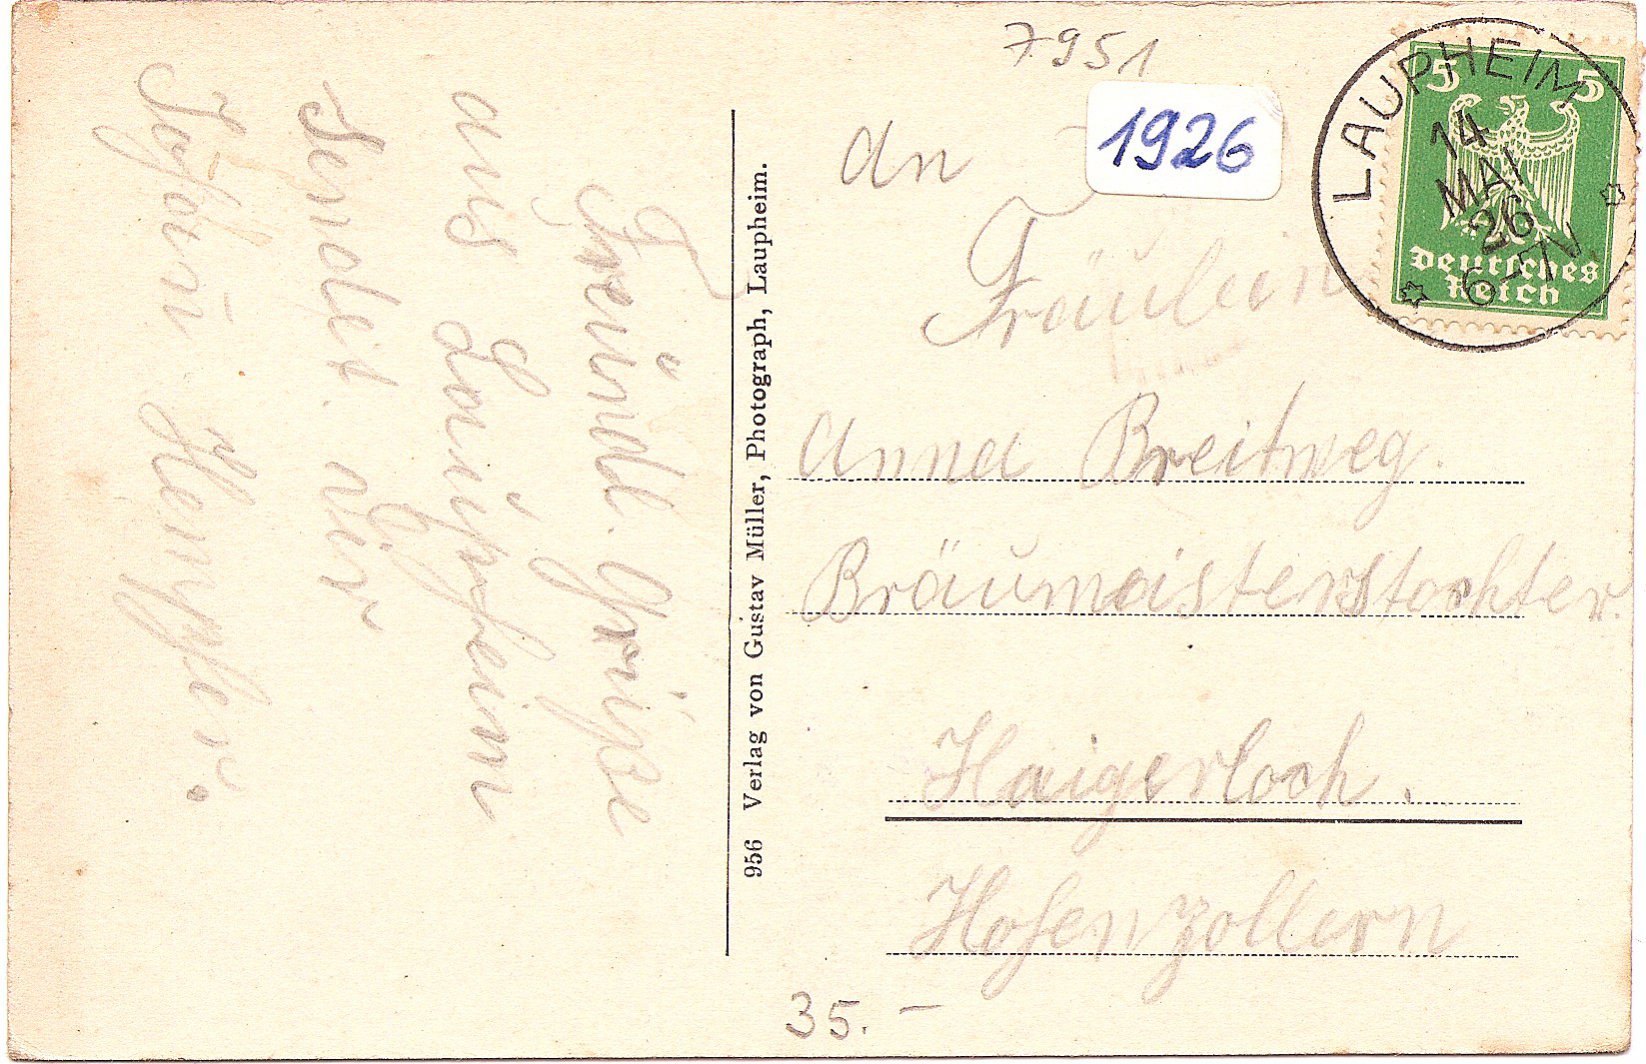 7951
1926
LAUPHEIM
14
MAI
26
6-7N.
5 5
Deutsches
Reich
An
Fräulein
Anna Breitweg.
Bräumeisterstochter.
Haigerloch.
Hohenzollern
35.–
956 Verlag von Gustav Müller, Photograph, Laupheim.
Freundl. Grüße
aus Laupheim
sendet dir